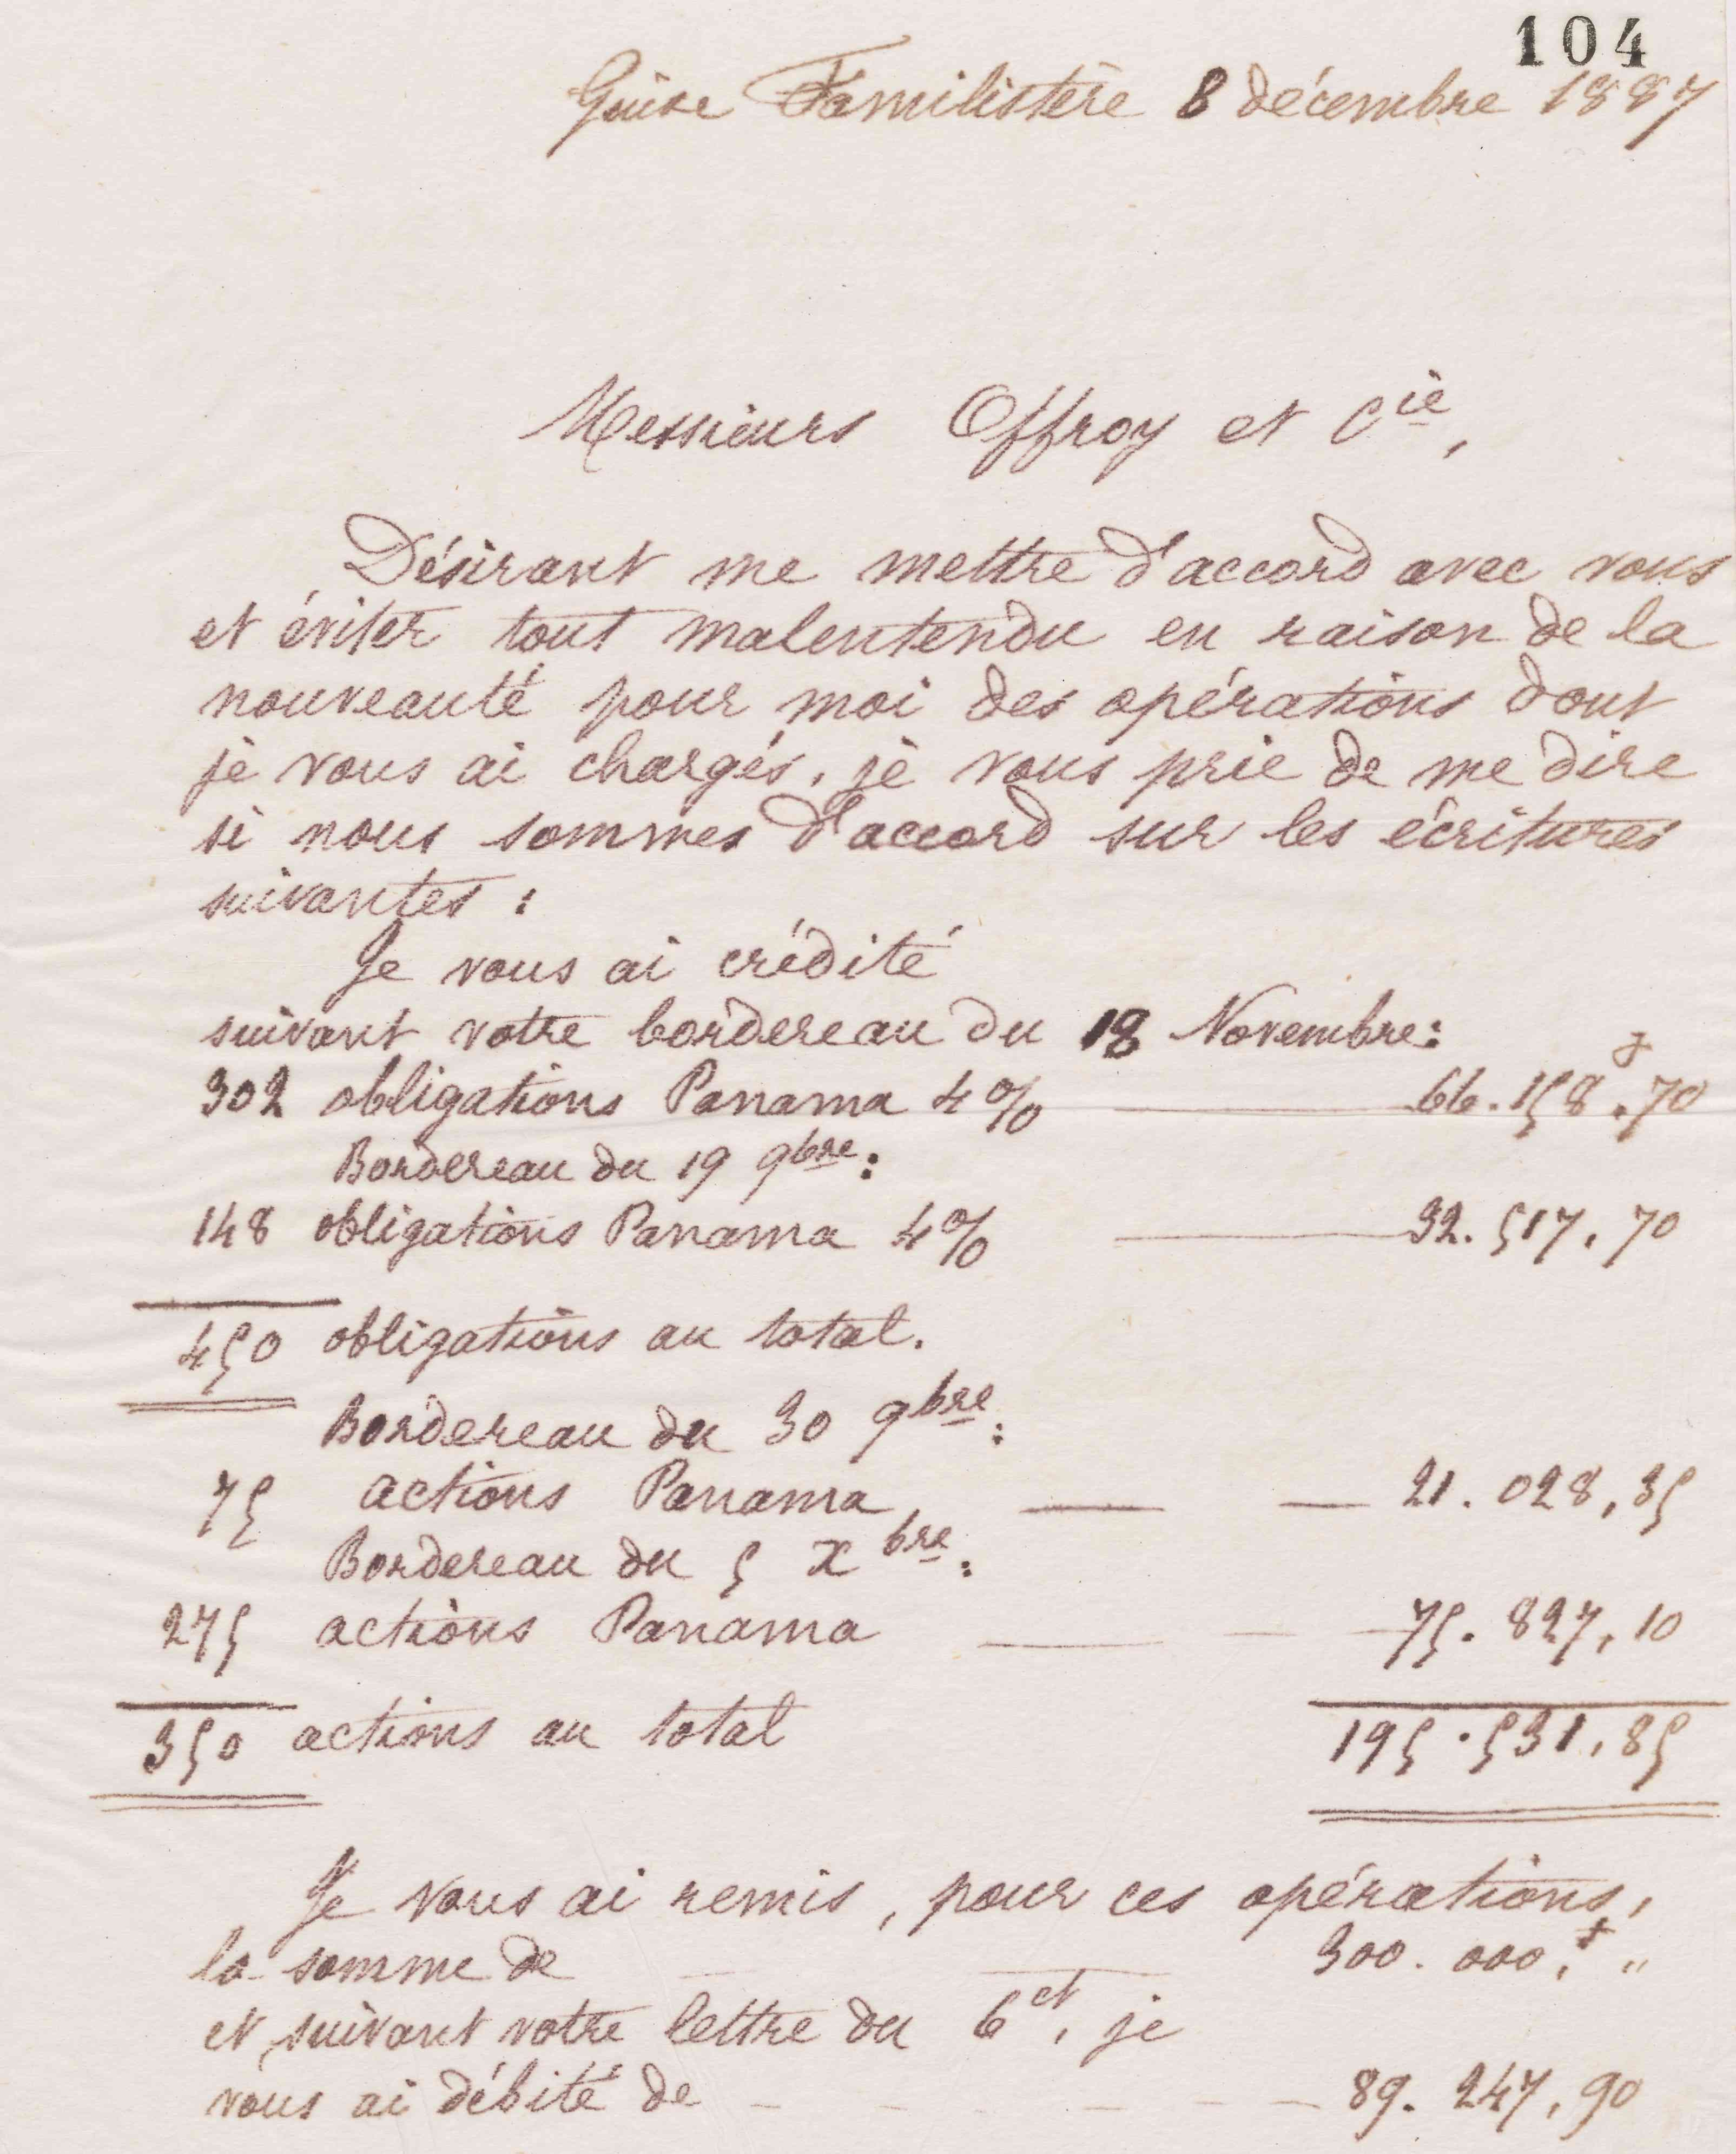 104
Guise Familistère 8 décembre 1887
Messieurs Offroy et Cie,
Désirant me mettre d'accord avec vous
et éviter tout malentendu en raison de la
nouveauté pour moi des opérations dont
je vous ai chargés, je vous prie de me dire
si nous sommes d'accord sur les écritures
suivantes :
Je vous ai crédité
suivant votre bordereau du 18 Novembre :
302 obligations Panama 4% 66.158f.70
Bordereau du 19 9bre :
148 obligations Panama 4% 32.517,70
450 obligations au total.
Bordereau du 30 9bre :
75 actions Panama, 21.028,35
Bordereau du 5 Xbre :
275 actions Panama 75.827,10
350 actions au total 195.531,85
Je vous ai remis, pour ces opérations,
la somme de 300.000,f "
et suivant votre lettre du 6 ct, je
vous ai débité de 89.247,90